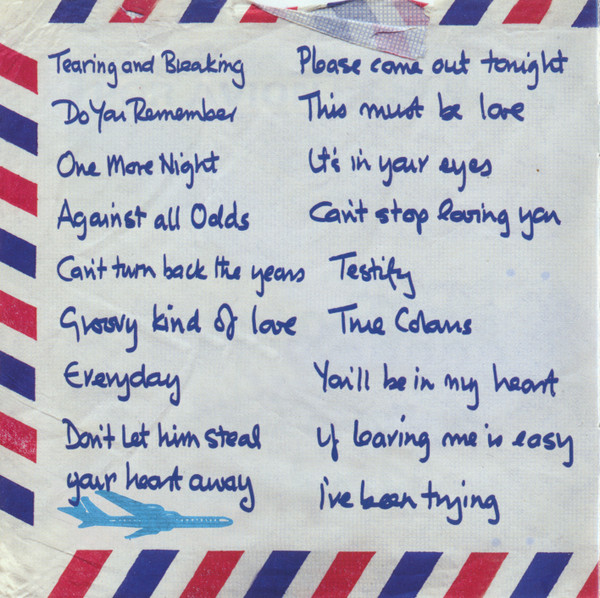 Tearing and Breaking
Do You Remember
One More Night
Against all Odds
Can't turn back the years
Groovy kind of love
Everyday
Don't Let him steal
your heart away
Please come out tonight
This must be love
It's in your eyes
Can't stop loving you
Testify
True Colours
You'll be in my heart
If leaving me is easy
I've been trying